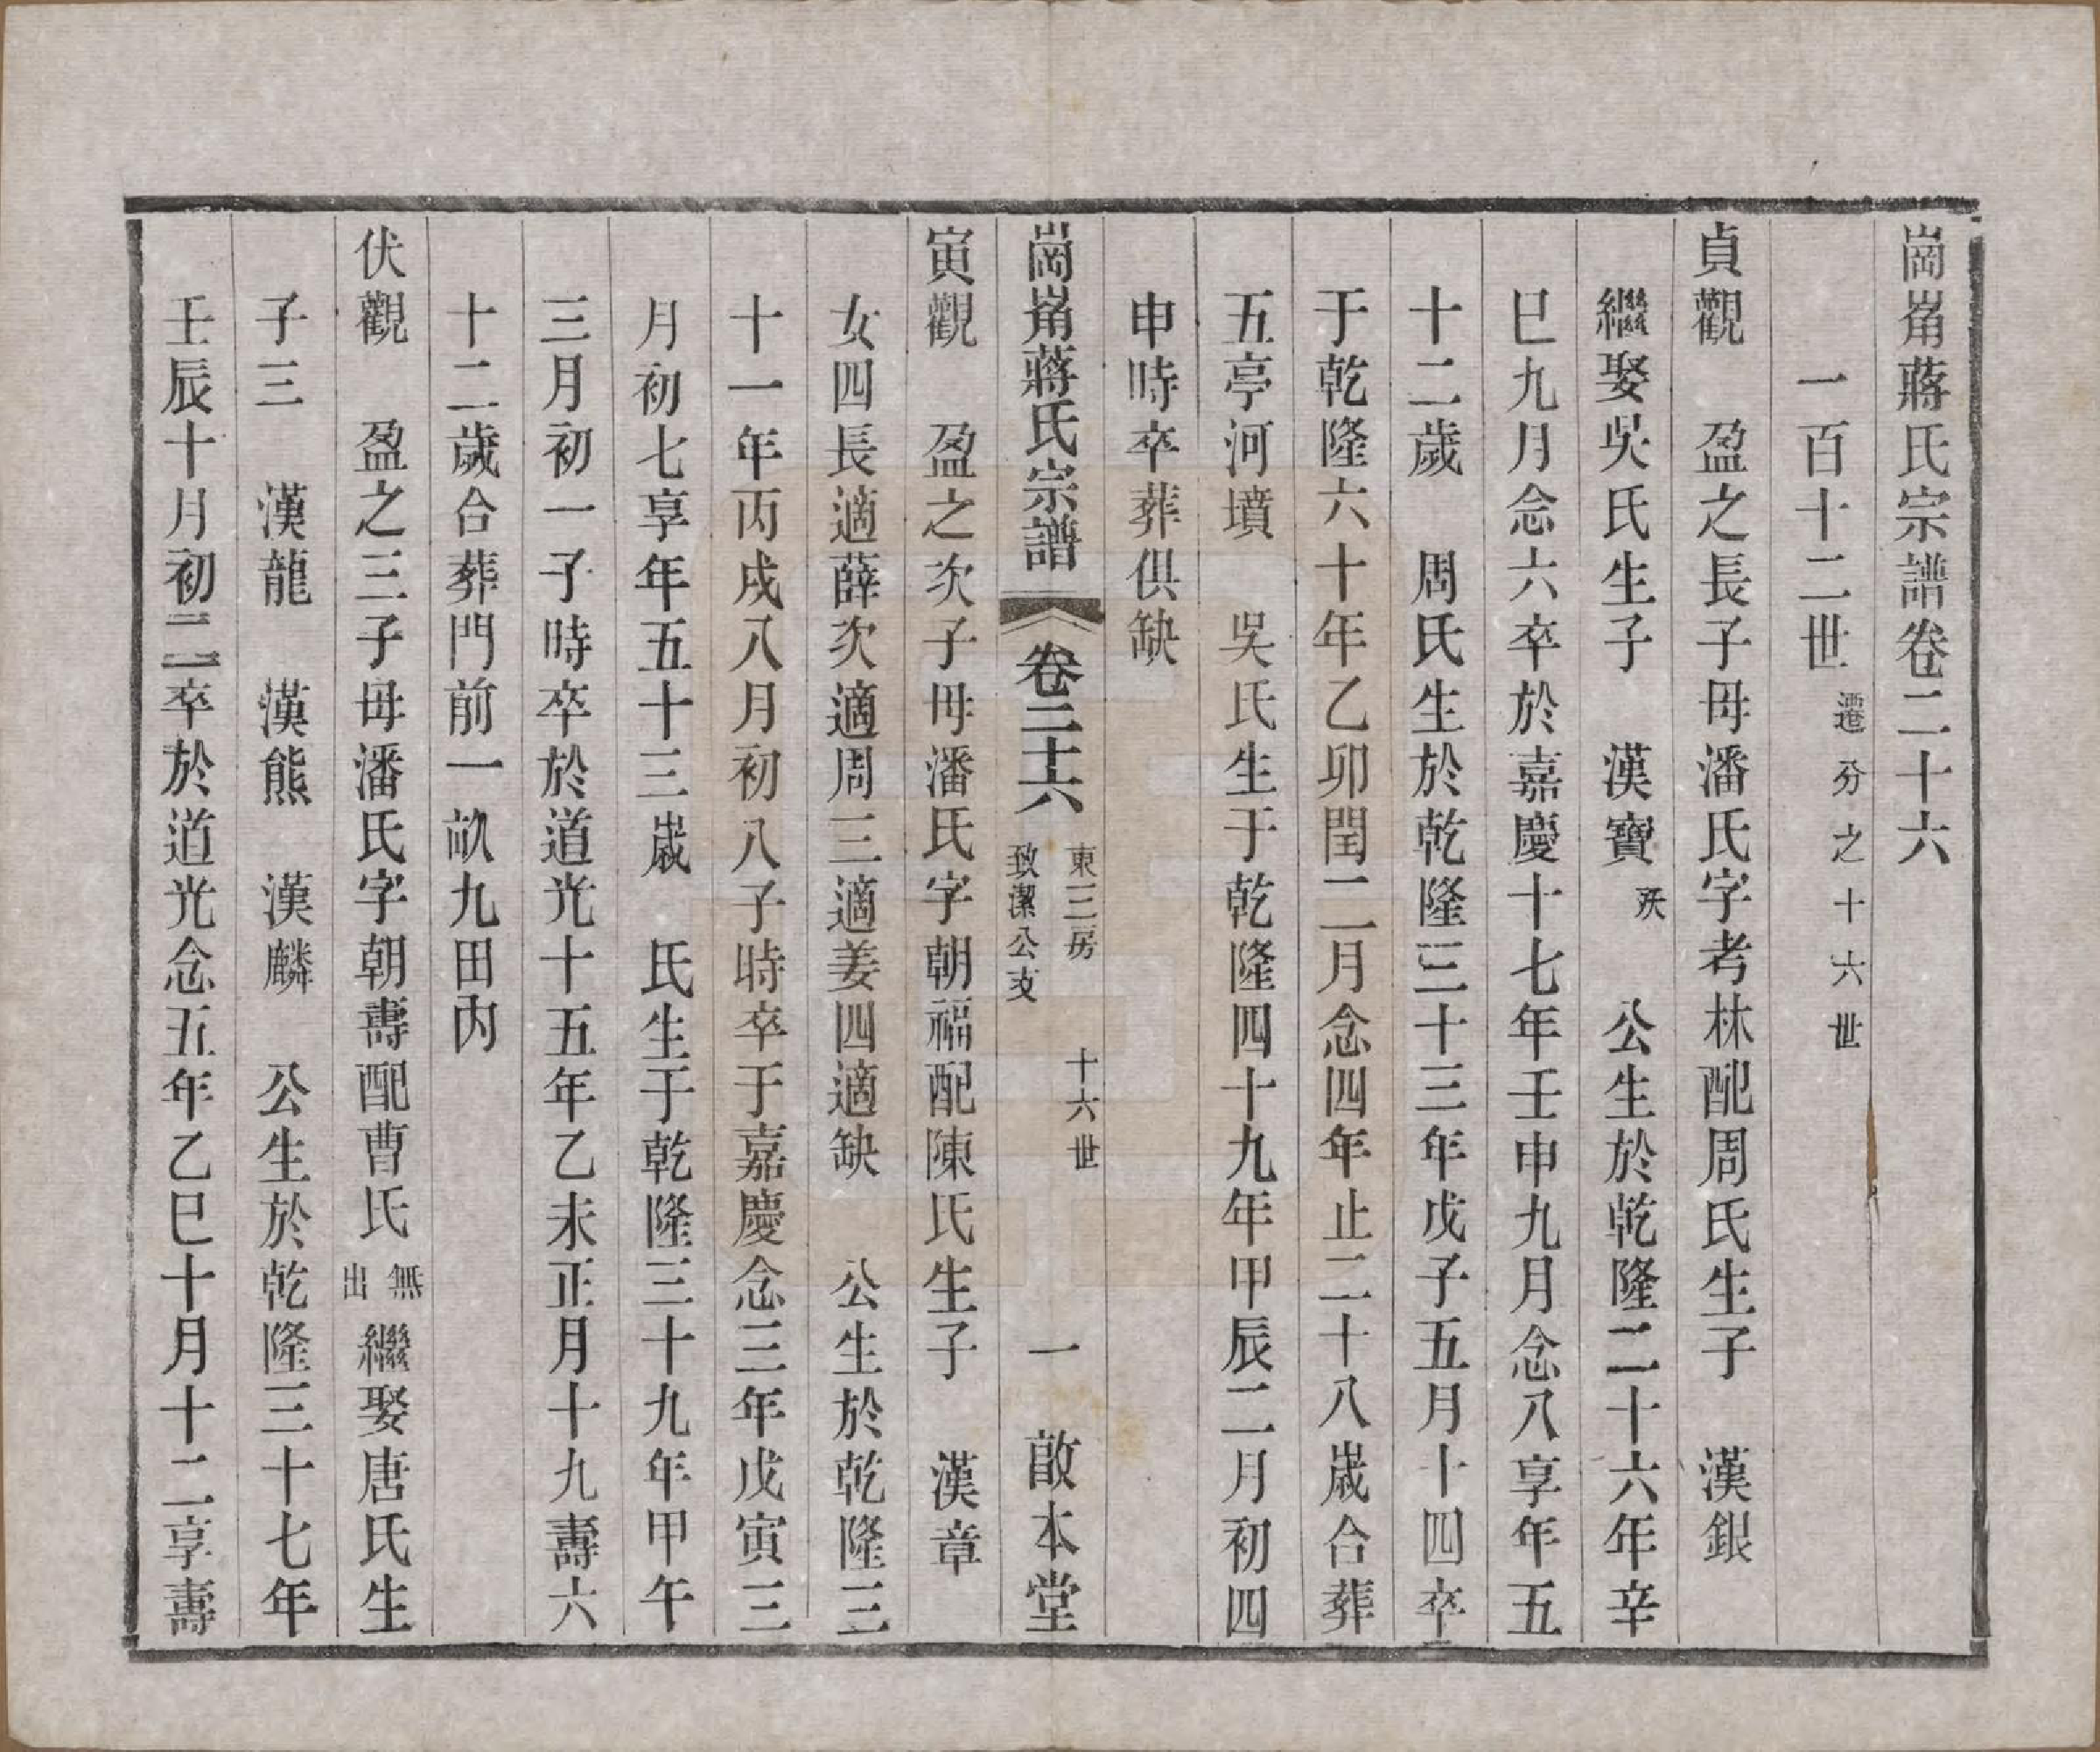 崗崙蔣氏宗譜卷二十六
一百十二世 遷分之十六世
貞觀 盈之長子毋潘氏字考林配周氏生子 漢銀
繼娶吳氏生子 漢寶 殀 公生於乾隆二十六年辛
巳九月念六卒於嘉慶十七年壬申九月念八享年五
十二歲 周氏生於乾隆三十三年戊子五月十四卒
于乾隆六十年乙卯閏二月念四年止二十八歲合葬
五亭河墳 吳氏生于乾隆四十九年甲辰二月初四
申時卒葬俱缺
崗崙蔣氏宗譜 卷二十六 東三房 致潔公支 十六世 一 啟本堂
寅觀 盈之次子毋潘氏字朝福配陳氏生子 漢章
女四長適薛次適周三適姜四適缺 公生於乾隆三
十一年丙戌八月初八子時卒于嘉慶念三年戊寅三
月初七享年五十三歲 氏生于乾隆三十九年甲午
三月初一子時卒於道光十五年乙未正月十九壽六
十二歲合葬門前一畝九田內
伏觀 盈之三子毋潘氏字朝壽配曹氏 無出 繼娶唐氏生
子三 漢龍 漢熊 漢麟 公生於乾隆三十七年
壬辰十月初二卒於道光念五年乙巳十月十二享壽